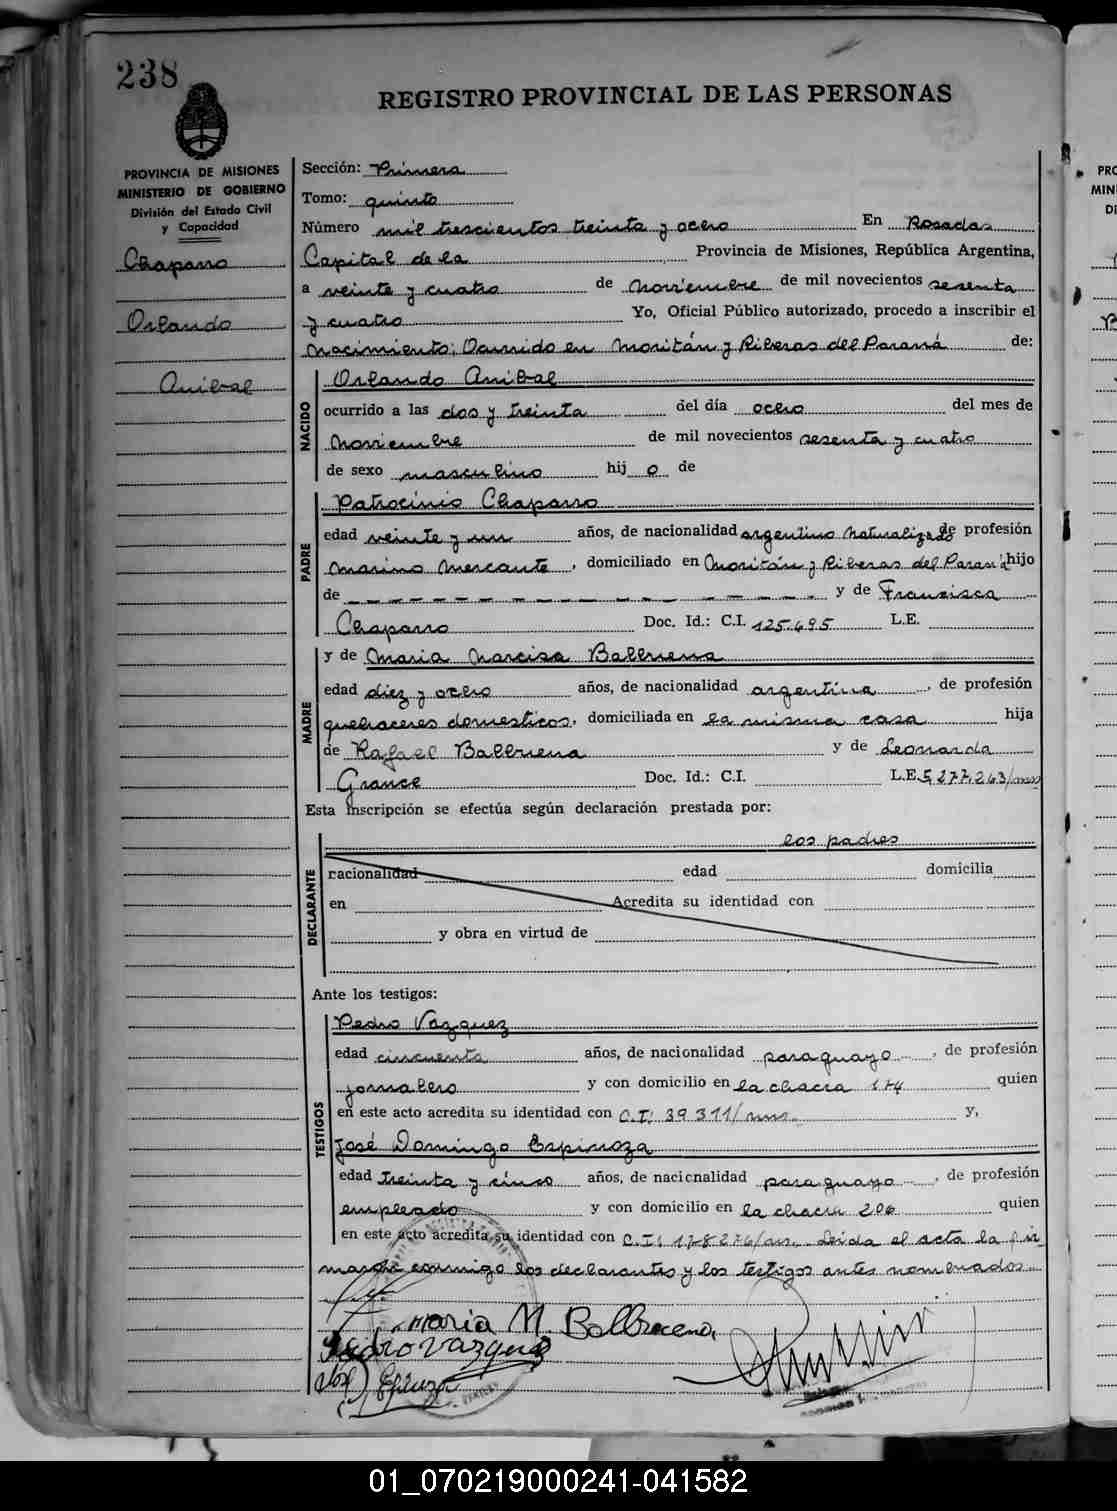 238
REGISTRO PROVINCIAL DE LAS PERSONAS
PROVINCIA DE MISIONES
MINISTERIO DE GOBIERNO
División del Estado Civil
y Capacidad
Chaparro
Orlando
Anibal
Sección: Primera
Tomo: quinto
Número mil trescientos treinta y ocho En Posadas
Capital de la Provincia de Misiones, República Argentina,
a veinte y cuatro de noviembre de mil novecientos sesenta
y cuatro Yo, Oficial Público autorizado, procedo a inscribir el
nacimiento; Ocurrido en Moritán y Riberas del Paraná de:
NACIDO
Orlando Anibal
ocurrido a las dos y treinta del día ocho del mes de
noviembre de mil novecientos sesenta y cuatro
de sexo masculino hij o de
PADRE
Patrocinio Chaparro
edad veinte y un años, de nacionalidad argentino naturalizado de profesión
marino mercante, domiciliado en Moritán y Riberas del Paraná hijo
de y de Francisca
Chaparro Doc. Id.: C.I. 125.695 L.E.
MADRE
y de Maria Narcisa Balbuena
edad diez y ocho años, de nacionalidad argentina, de profesión
quehaceres domesticos, domiciliada en la misma casa hija
de Rafael Balbuena y de Leonarda
Grance Doc. Id.: C.I. L.E. 5.277.263/mns
Esta inscripción se efectúa según declaración prestada por:
DECLARANTE
los padres
nacionalidad edad domicilia
en Acredita su identidad con
y obra en virtud de
Ante los testigos:
TESTIGOS
Pedro Vazquez
edad cincuenta años, de nacionalidad paraguayo, de profesión
jornalero y con domicilio en la chacra 174 quien
en este acto acredita su identidad con C.I: 39311/mns. y,
José Domingo Espinoza
edad treinta y cinco años, de nacionalidad paraguayo, de profesión
empleado y con domicilio en la chacra 206 quien
en este acto acredita su identidad con C.I: 178276/mns. Leida el acta la fir
maron conmigo los declarantes y los testigos antes nombrados.
Maria N. Balbuena
Pedro Vazquez
José Espinoza
01_070219000241-041582